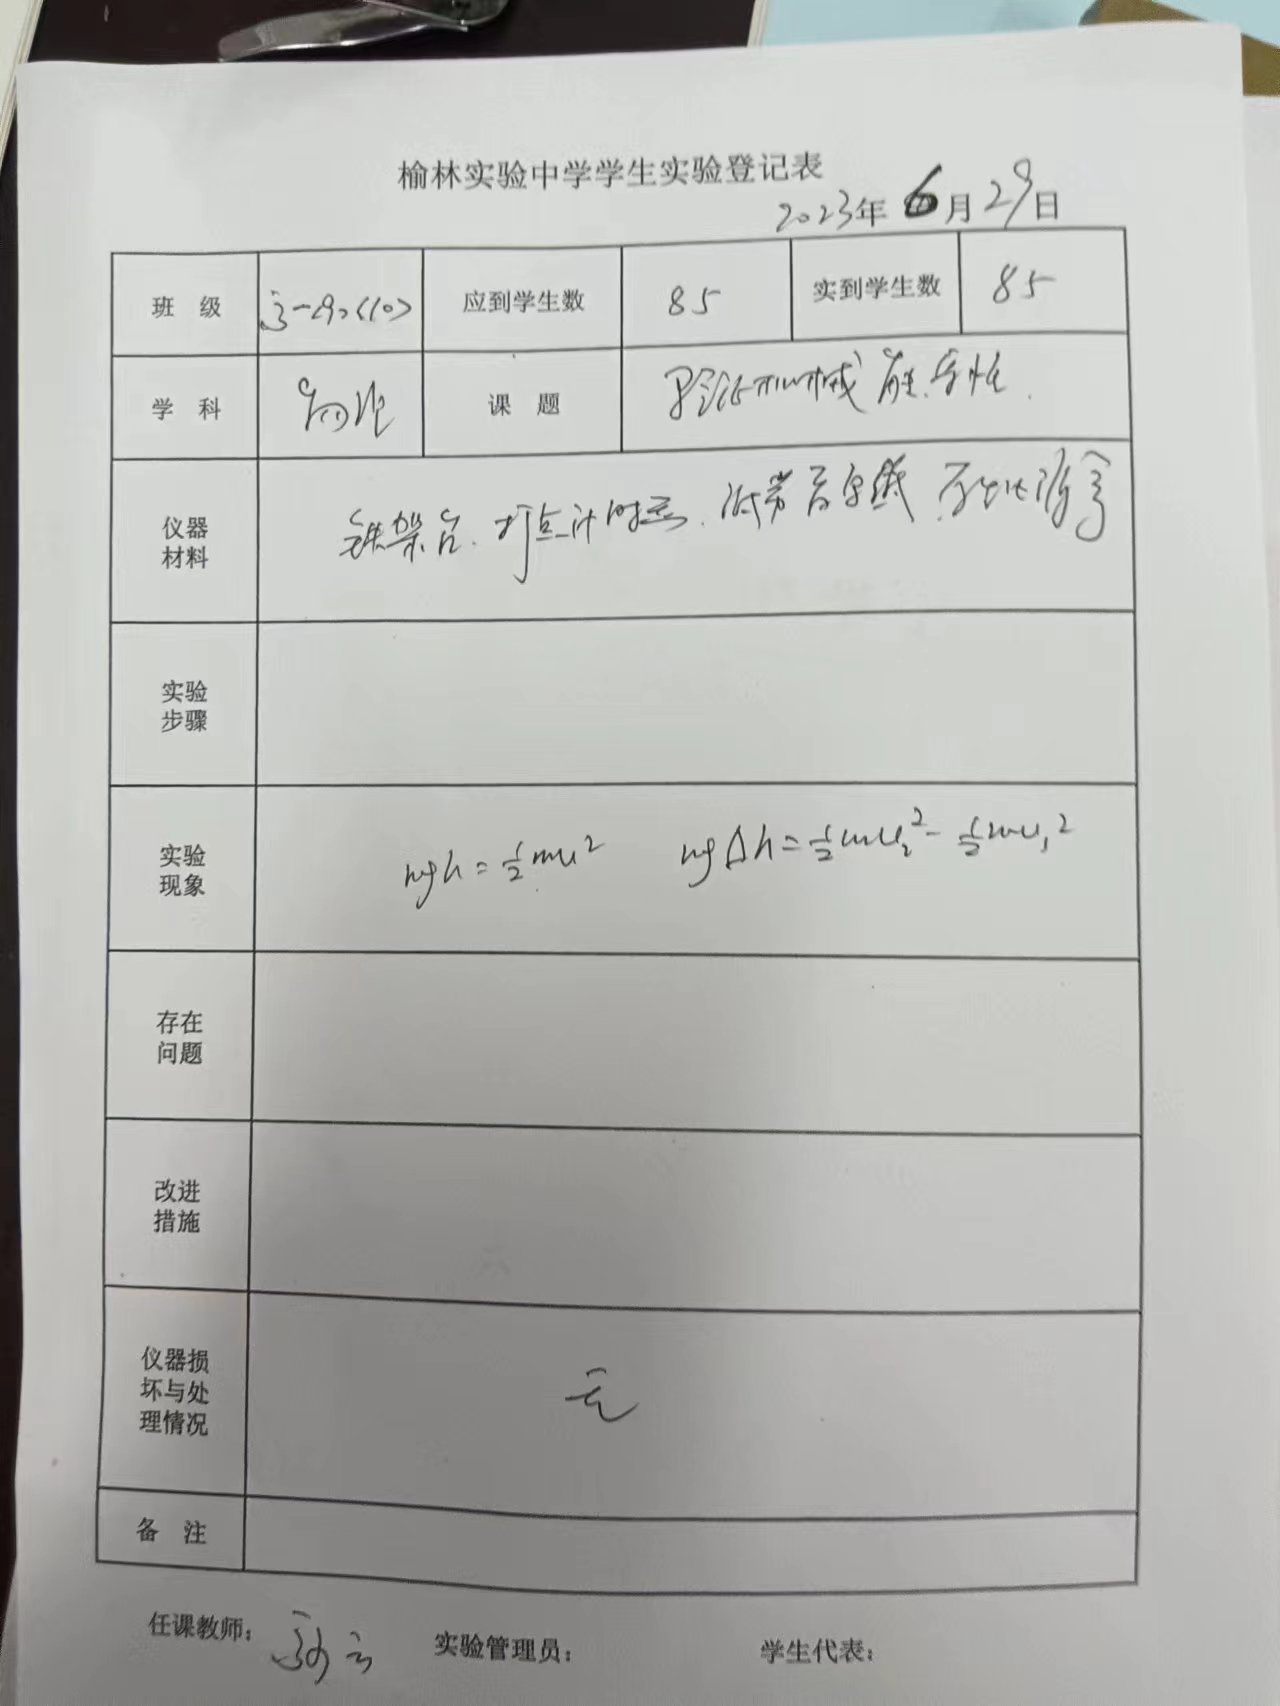 榆林实验中学学生实验登记表
2023年 6月29日
班 级 高一(9)、(10) 应到学生数 85 实到学生数 85
学 科 物理 课 题 验证机械能守恒.
仪器材料 铁架台. 打点计时器. 纸带 复写纸
实验步骤
实验现象 mgh=½mv² mgΔh=½mv₂²-½mv₁²
存在问题
改进措施
仪器损坏与处理情况 无
备 注
任课教师: 实验管理员: 学生代表: